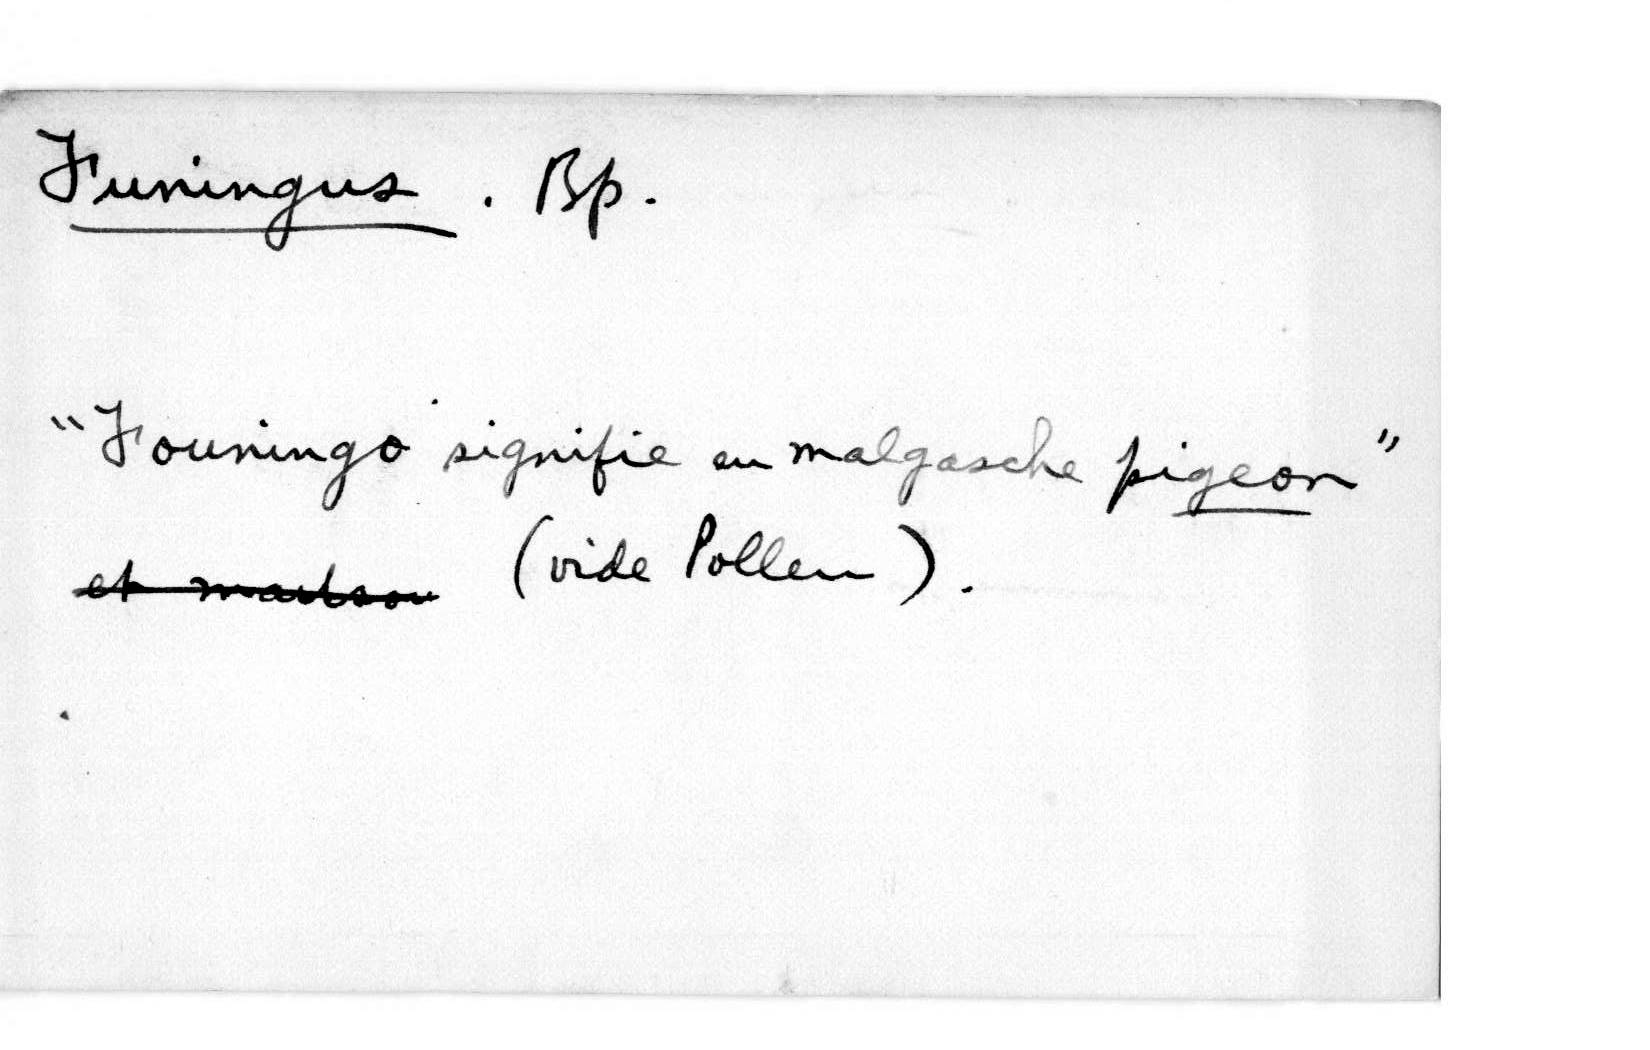 Funingus . Bp.
“Founingo signifie en malgasche pigeon”
(vide Pollen).